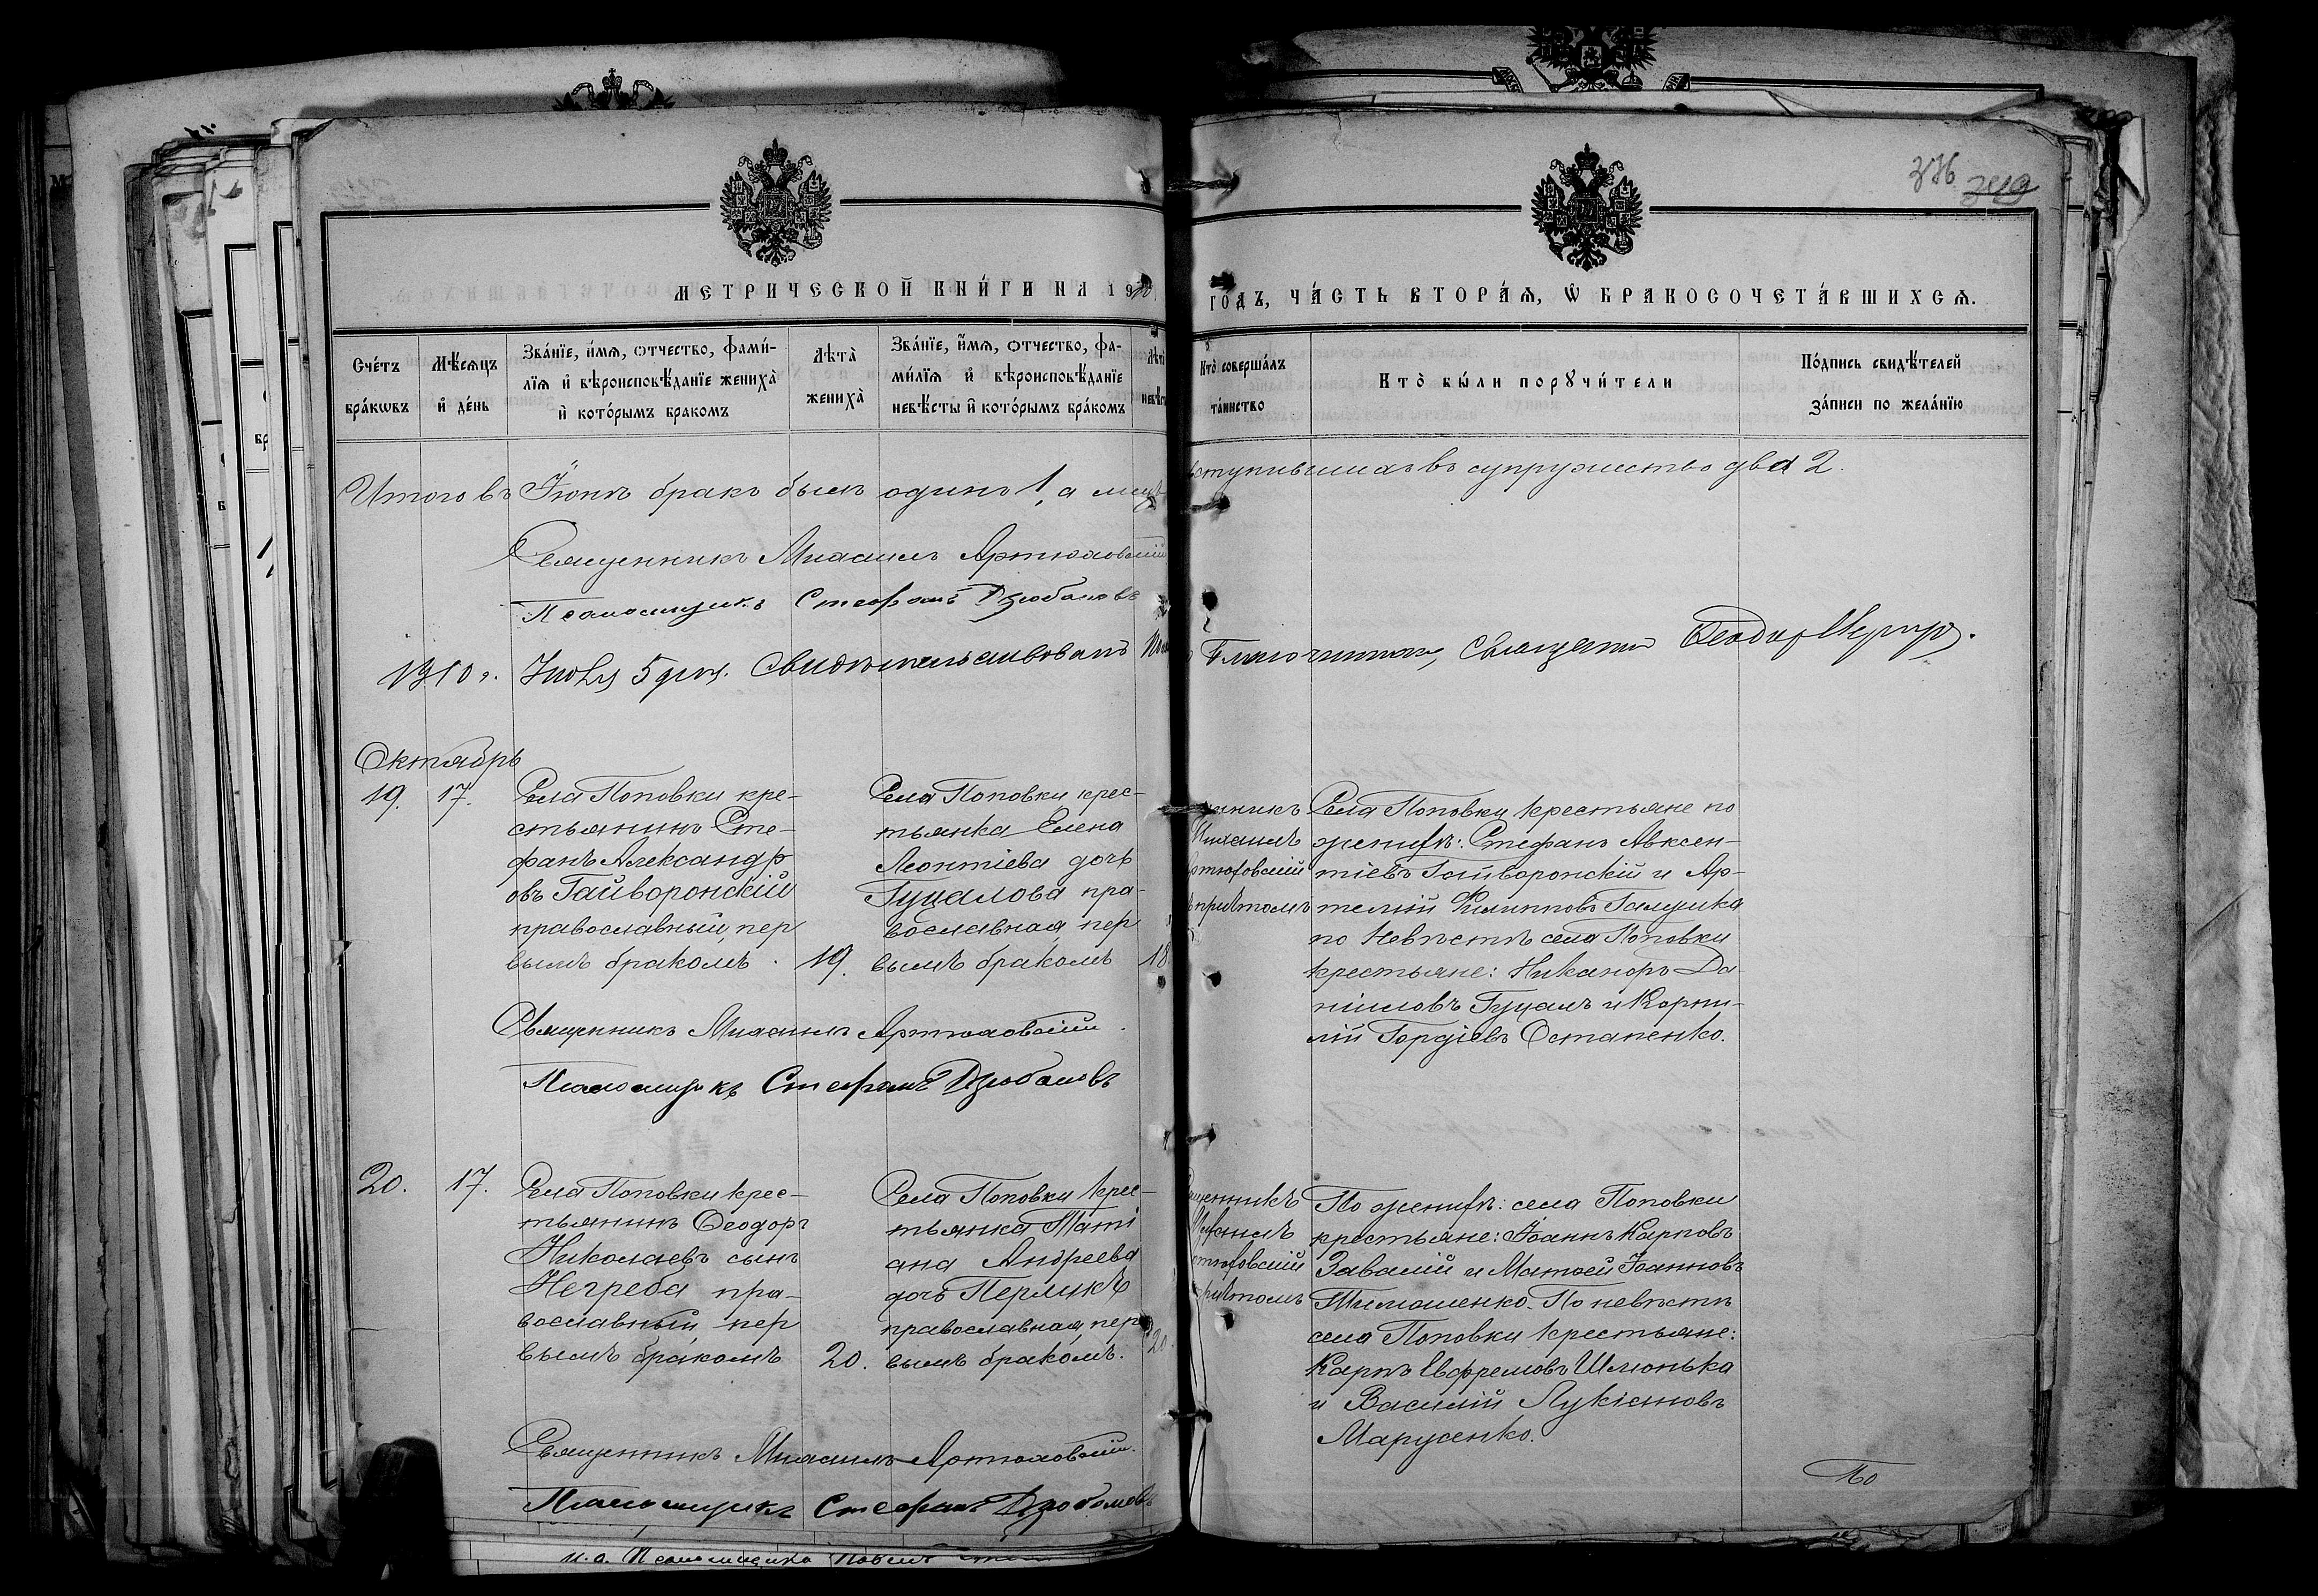 376 349
МЕТРИЧЕСКОЙ КНИ́ГИ НА 1910
ГОДЪ, ЧА́СТЬ ВТОРА́Ѧ, Ѡ҆ БРАКОСОЧЕТА́ВШИХСѦ.
Сче́тъ бра́кѡвъ
Мѣ́сѧцъ и҆ де́нь
Зва́нїе, и҆́мѧ, ѻтчество, фами́-
лїѧ и҆ вѣроисповѣ́данїе жениха̀
и҆ кото́рымъ бракомъ
Лѣта̀ жениха̀
Зва́нїе, и҆́мѧ, ѻтчество, фа-
ми́лїѧ и҆ вѣроисповѣ́данїе
невѣ́сты и҆ кото́рымъ бра́комъ
Кто̀ соверша́лъ
та́инство
Кто̀ бы́ли порꙋчи́тели
По́дпись свидѣ́телей
за́писи по жела́нїю
Итого въ Іюнѣ бракъ былъ одинъ 1, а лицъ
вступившихъ въ супружество два 2.
Священникъ Михаилъ Артюховскій
Псаломщикъ Стефанъ Дзюбановъ
1910 г. Іюля 5 дня. Свидѣтельствовалъ
Благочинный, Священникъ Ѳеодоръ
Октябрь
19. 17.
Села Поповки кре-
стьянинъ Сте-
фанъ Александр
овъ Гайворонскій
православный, пер
вымъ бракомъ.
19.
Села Поповки крес-
тьянка Елена
Леонтіева дочь
Гуцалова пра-
вославная, пер
вымъ бракомъ
18
щенникъ
Михаилъ
Артюховскій
съ причтомъ
Села Поповки крестьяне по
женихѣ: Стефанъ Авксен-
тіевъ Гайворонскій и Ар-
темій Филипповъ Галушка
по Невѣстѣ села Поповки
крестьяне: Никаноръ Да-
ніиловъ Гуцалъ и Корни-
лій Гордіевъ Остапенко.
Священникъ Михаилъ Артюховскій.
Псаломщикъ Стефанъ Дзюбановъ
20. 17.
Села Поповки крес-
тьянинъ Ѳеодоръ
Николаевъ сынъ
Негреба пра-
вославный, пер
вымъ бракомъ
20.
Села Поповки крес-
тьянка Таті
ана Андреева
дочь Перлукъ
православная, пер
вымъ бракомъ.
20.
щенникъ
Михаилъ
Артюховскій
причтомъ
По женихѣ: села Поповки
крестьяне: Іоаннъ Карповъ
Завалій и Матѳей Іоанновъ
Тимошенко. По невѣстѣ
села Поповки крестьяне:
Карпъ Евфремовъ Шлюнька
и Василій Лукіановъ
Марусенко.
Священникъ Михаилъ Артюховскій.
Псаломщикъ Стефанъ Дзюбановъ
По
и. о. Псаломщика Павелъ